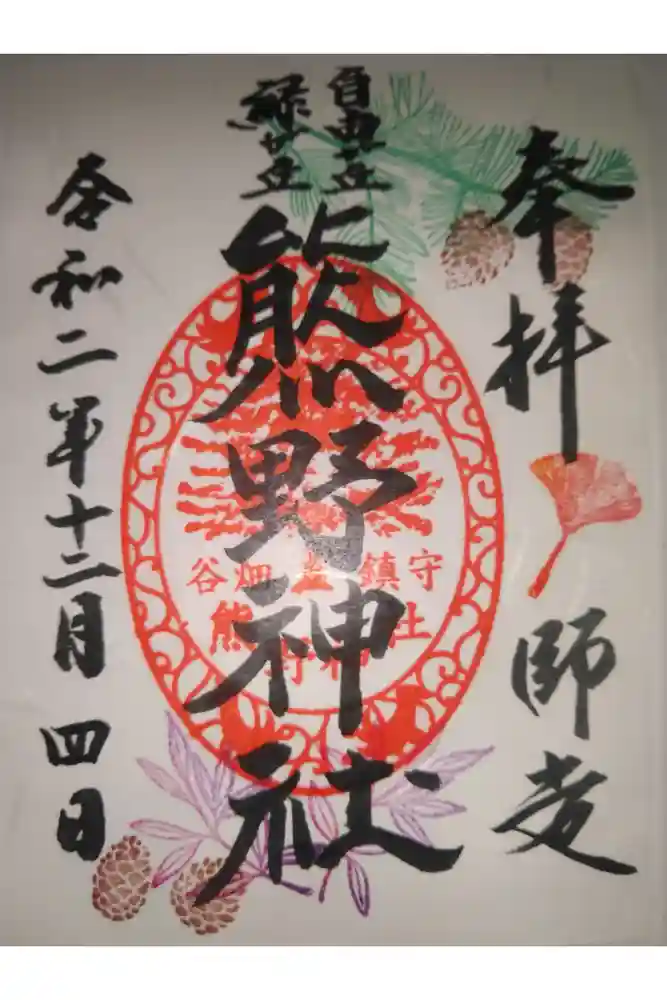 奉拝 師走
自由が丘
緑が丘
熊野神社
谷畑 鎮守
熊野神社
令和二年十二月四日